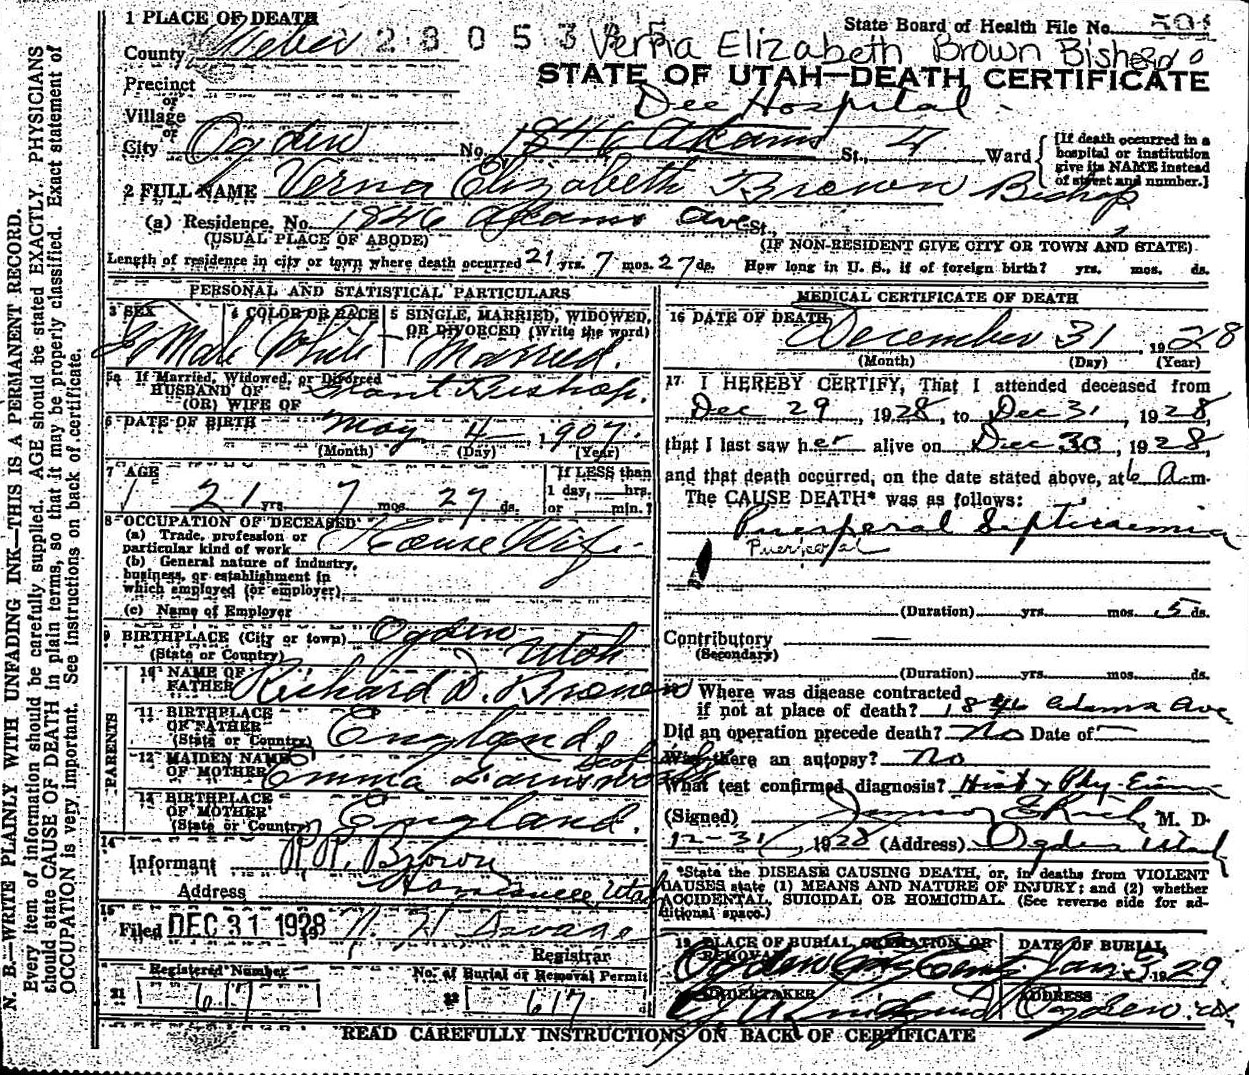 1 PLACE OF DEATH
State Board of Health File No.
County Weber
Verna Elizabeth Brown Bishop
Precinct
STATE OF UTAH—DEATH CERTIFICATE
or
Village
Dee Hospital
or
City Ogden No. 1846 Adams St., 4 Ward
[If death occurred in a hospital or institution give its NAME instead of street and number.]
2 FULL NAME Verna Elizabeth Brown Bishop
(a) Residence, No. 1846 Adams Ave St.,
(USUAL PLACE OF ABODE) (IF NON-RESIDENT GIVE CITY OR TOWN AND STATE)
Length of residence in city or town where death occurred 21 yrs. 7 mos. 27 ds. How long in U. S., if of foreign birth? yrs. mos. ds.
PERSONAL AND STATISTICAL PARTICULARS
3 SEX
Female
4 COLOR OR RACE
White
5 SINGLE, MARRIED, WIDOWED, OR DIVORCED (Write the word)
Married.
5a If Married, Widowed, or Divorced
HUSBAND OF
(OR) WIFE OF
Grant Bishop.
6 DATE OF BIRTH May 4, 1907.
(Month) (Day) (Year)
7 AGE
21 yrs. 7 mos. 27 ds.
If LESS than
1 day, hrs.
or min.?
8 OCCUPATION OF DECEASED
(a) Trade, profession or
particular kind of work House Wife
(b) General nature of industry,
business, or establishment in
which employed (or employer)
(c) Name of Employer
9 BIRTHPLACE (City or town) Ogden
(State or Country) Utah
PARENTS
10 NAME OF
FATHER Richard D. Brown
11 BIRTHPLACE
OF FATHER
(State or Country) England
12 MAIDEN NAME
OF MOTHER Emma
13 BIRTHPLACE
OF MOTHER
(State or Country) England.
14
Informant Brown
Address Utah
15
Filed DEC 31 1928
Registrar
Registered Number
21 617
No. of Burial or Removal Permit
22 617
MEDICAL CERTIFICATE OF DEATH
16 DATE OF DEATH December 31, 1928
(Month) (Day) (Year)
17 I HEREBY CERTIFY, That I attended deceased from
Dec 29 1928, to Dec 31, 1928,
that I last saw her alive on Dec 30, 1928,
and that death occurred, on the date stated above, at 6 a.m.
The CAUSE DEATH* was as follows:
Puerperal Septicaemia
Puerperal
(Duration) yrs. mos. 5 ds.
Contributory —
(Secondary)
(Duration) yrs. mos. ds.
Where was disease contracted
if not at place of death? 1846 Adams Ave
Did an operation precede death? No Date of —
Was there an autopsy? No
What test confirmed diagnosis? Hist & Phy Exam
(Signed) M. D.
12-31, 1928 (Address) Ogden Utah
*State the DISEASE CAUSING DEATH, or, in deaths from VIOLENT
CAUSES state (1) MEANS AND NATURE OF INJURY; and (2) whether
ACCIDENTAL, SUICIDAL OR HOMICIDAL. (See reverse side for ad-
ditional space.)
19 PLACE OF BURIAL, CREMATION, OR REMOVAL
Ogden City
DATE OF BURIAL
Jan. 1929
UNDERTAKER
ADDRESS
Ogden.
READ CAREFULLY INSTRUCTIONS ON BACK OF CERTIFICATE
N. B.—WRITE PLAINLY WITH UNFADING INK—THIS IS A PERMANENT RECORD.
Every item of information should be carefully supplied. AGE should be stated EXACTLY. PHYSICIANS
should state CAUSE OF DEATH in plain terms, so that it may be properly classified. Exact statement of
OCCUPATION is very important. See instructions on back of certificate.